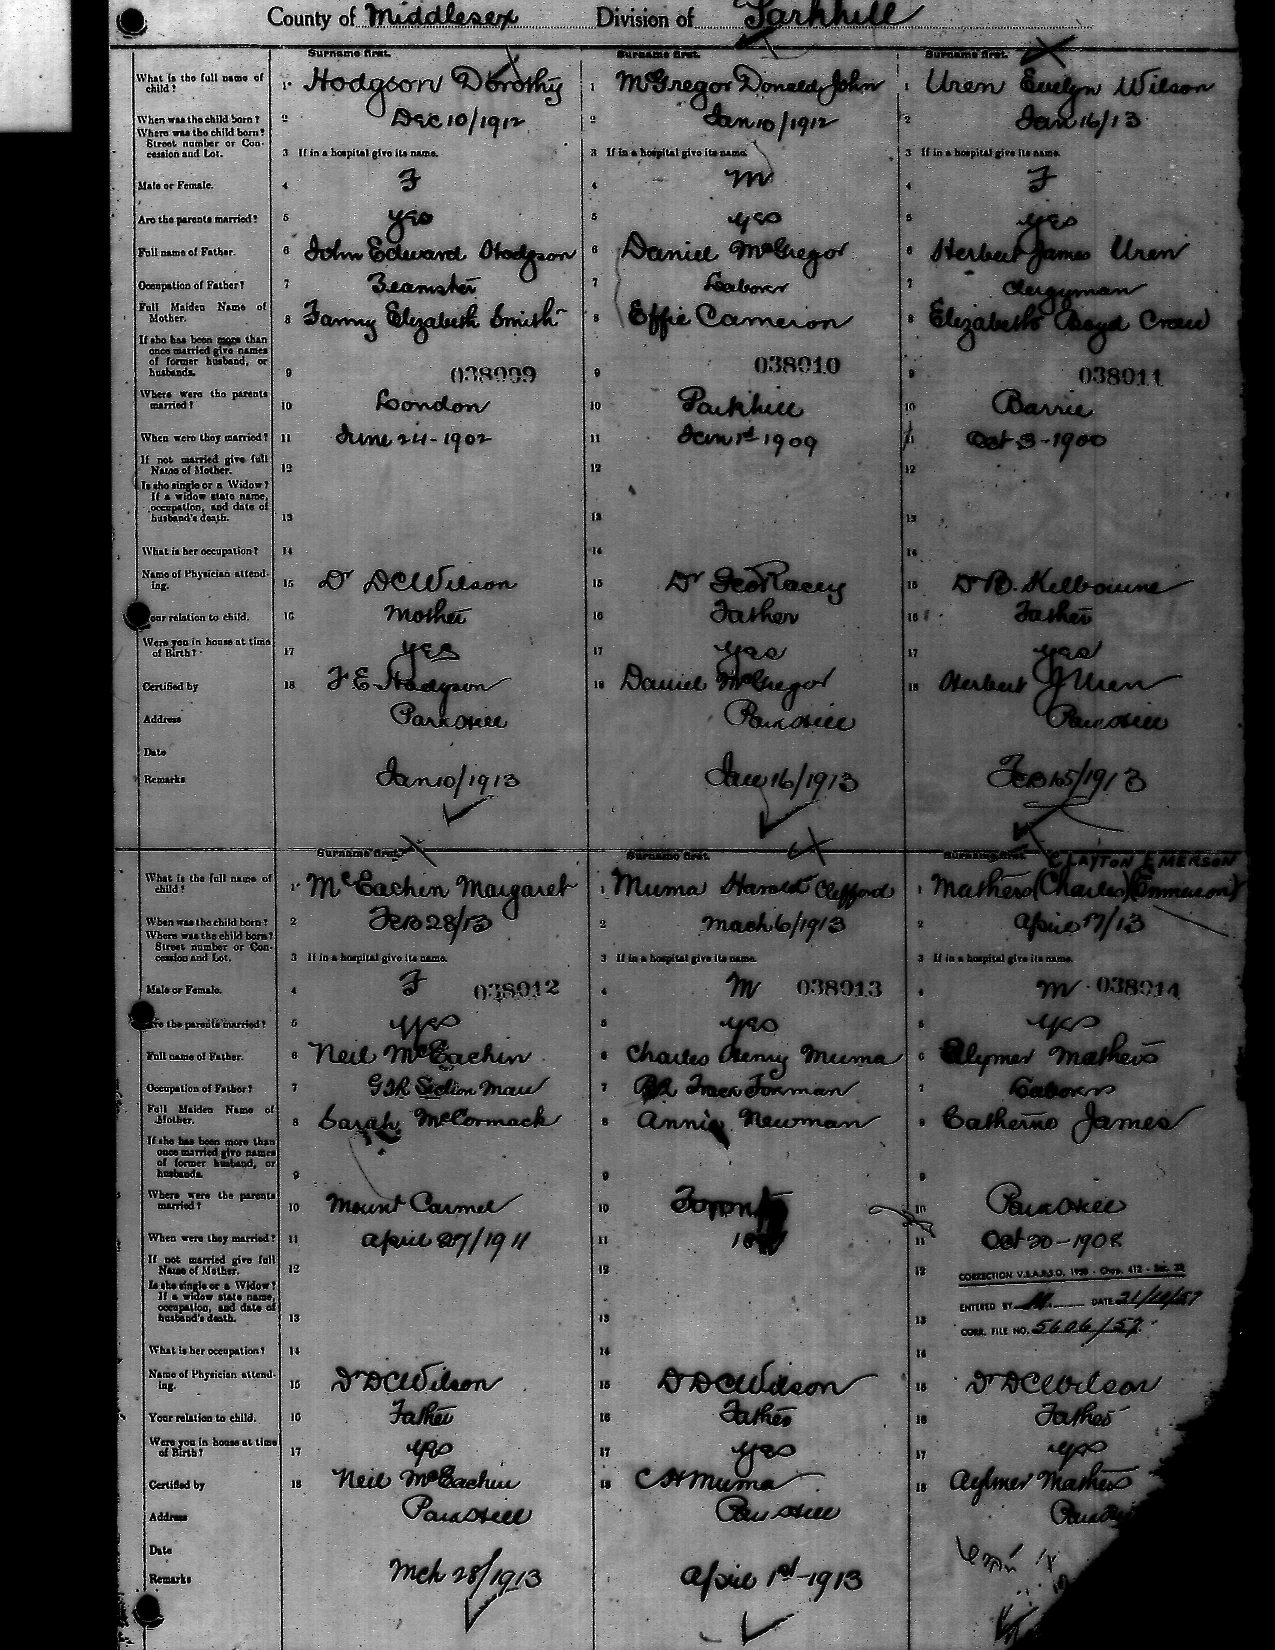 County of Middlesex Division of Parkhill
Surname first. Surname first. Surname first.
What is the full name of child? 1 Hodgson Dorothy 1 McGregor Donald John 1 Uren Evelyn Wilson
When was the child born? 2 Dec 10/1912 2 Jan 10/1912 2 Jan 16/13
Where was the child born?
Street number or Con-
cession and Lot. 3 If in a hospital give its name. 3 If in a hospital give its name. 3 If in a hospital give its name.
Male or Female. 4 F 4 M 4 F
Are the parents married? 5 yes 5 yes 5 yes
Full name of Father. 6 John Edward Hodgson 6 Daniel McGregor 6 Herbert James Uren
Occupation of Father? 7 Teamster 7 Labour 7 Clergyman
Full Maiden Name of
Mother. 8 Fanny Elizabeth Smith 8 Effie Cameron 8 Elizabeth Boyd
If she has been more than
once married give names
of former husband, or
husbands. 9 038009 9 038010 9 038011
Where were the parents
married? 10 London 10 Parkhill 10 Barrie
When were they married? 11 June 24-1902 11 Jan 1st 1909 11 Oct 3-1900
If not married give full
Name of Mother. 12 12 12
Is she single or a Widow?
If a widow state name,
occupation, and date of
husband's death. 13 13 13
What is her occupation? 14 14 14
Name of Physician attend-
ing. 15 Dr DCWilson 15 Dr Geo Racey 15 Dr
Your relation to child. 16 Mother 16 Father 16 Father
Were you in house at time
of Birth? 17 yes 17 yes 17 yes
Certified by 18 F E Hodgson 18 Daniel McGregor 18 Herbert J Uren
Address ParkHill ParkHill ParkHill
Date
Remarks Jan 10/1913 Jan 16/1913 Feb 15/1913
Surname first. Surname first. Surname first. CLAYTON EMERSON
What is the full name of
child? 1 McEachen Margaret 1 Muma Harold Clifford 1 Mathers (Charles) (Emmerson)
When was the child born? 2 Feb 28/13 2 Mach 6/1913 2 April 17/13
Where was the child born?
Street number or Con-
cession and Lot. 3 If in a hospital give its name. 3 If in a hospital give its name. 3 If in a hospital give its name.
Male or Female. 4 F 038012 4 M 038013 4 M 038014
Are the parents married? 5 yes 5 yes 5 yes
Full name of Father. 6 Neil McEachin 6 Charles Henry Muma 6 Alymer Mathers
Occupation of Father? 7 GTR Section Man 7 Track Forman 7 Laborer
Full Maiden Name of
Mother. 8 Sarah McCormack 8 Annie Newman 8 Catherine James
If she has been more than
once married give names
of former husband, or
husbands. 9 9 9
Where were the parents
married? 10 Mount Carmel 10 Toronto 10 ParkHill
When were they married? 11 April 27/1911 11 11 Oct 20-1908
If not married give full
Name of Mother. 12 12 12 CORRECTION
Is she single or a Widow?
If a widow state name,
occupation, and date of
husband's death. 13 13 13 ENTERED BY DATE
CORR. FILE NO. 5606/57
What is her occupation? 14 14 14
Name of Physician attend-
ing. 15 Dr DCWilson 15 Dr DCWilson 15 Dr DCWilson
Your relation to child. 16 Father 16 Father 16 Father
Were you in house at time
of Birth? 17 yes 17 yes 17 yes
Certified by 18 Neil McEachin 18 CH Muma 18 Aylmer Mathers
Address ParkHill ParkHill
Date
Remarks Mch 28/1913 April 1st-1913